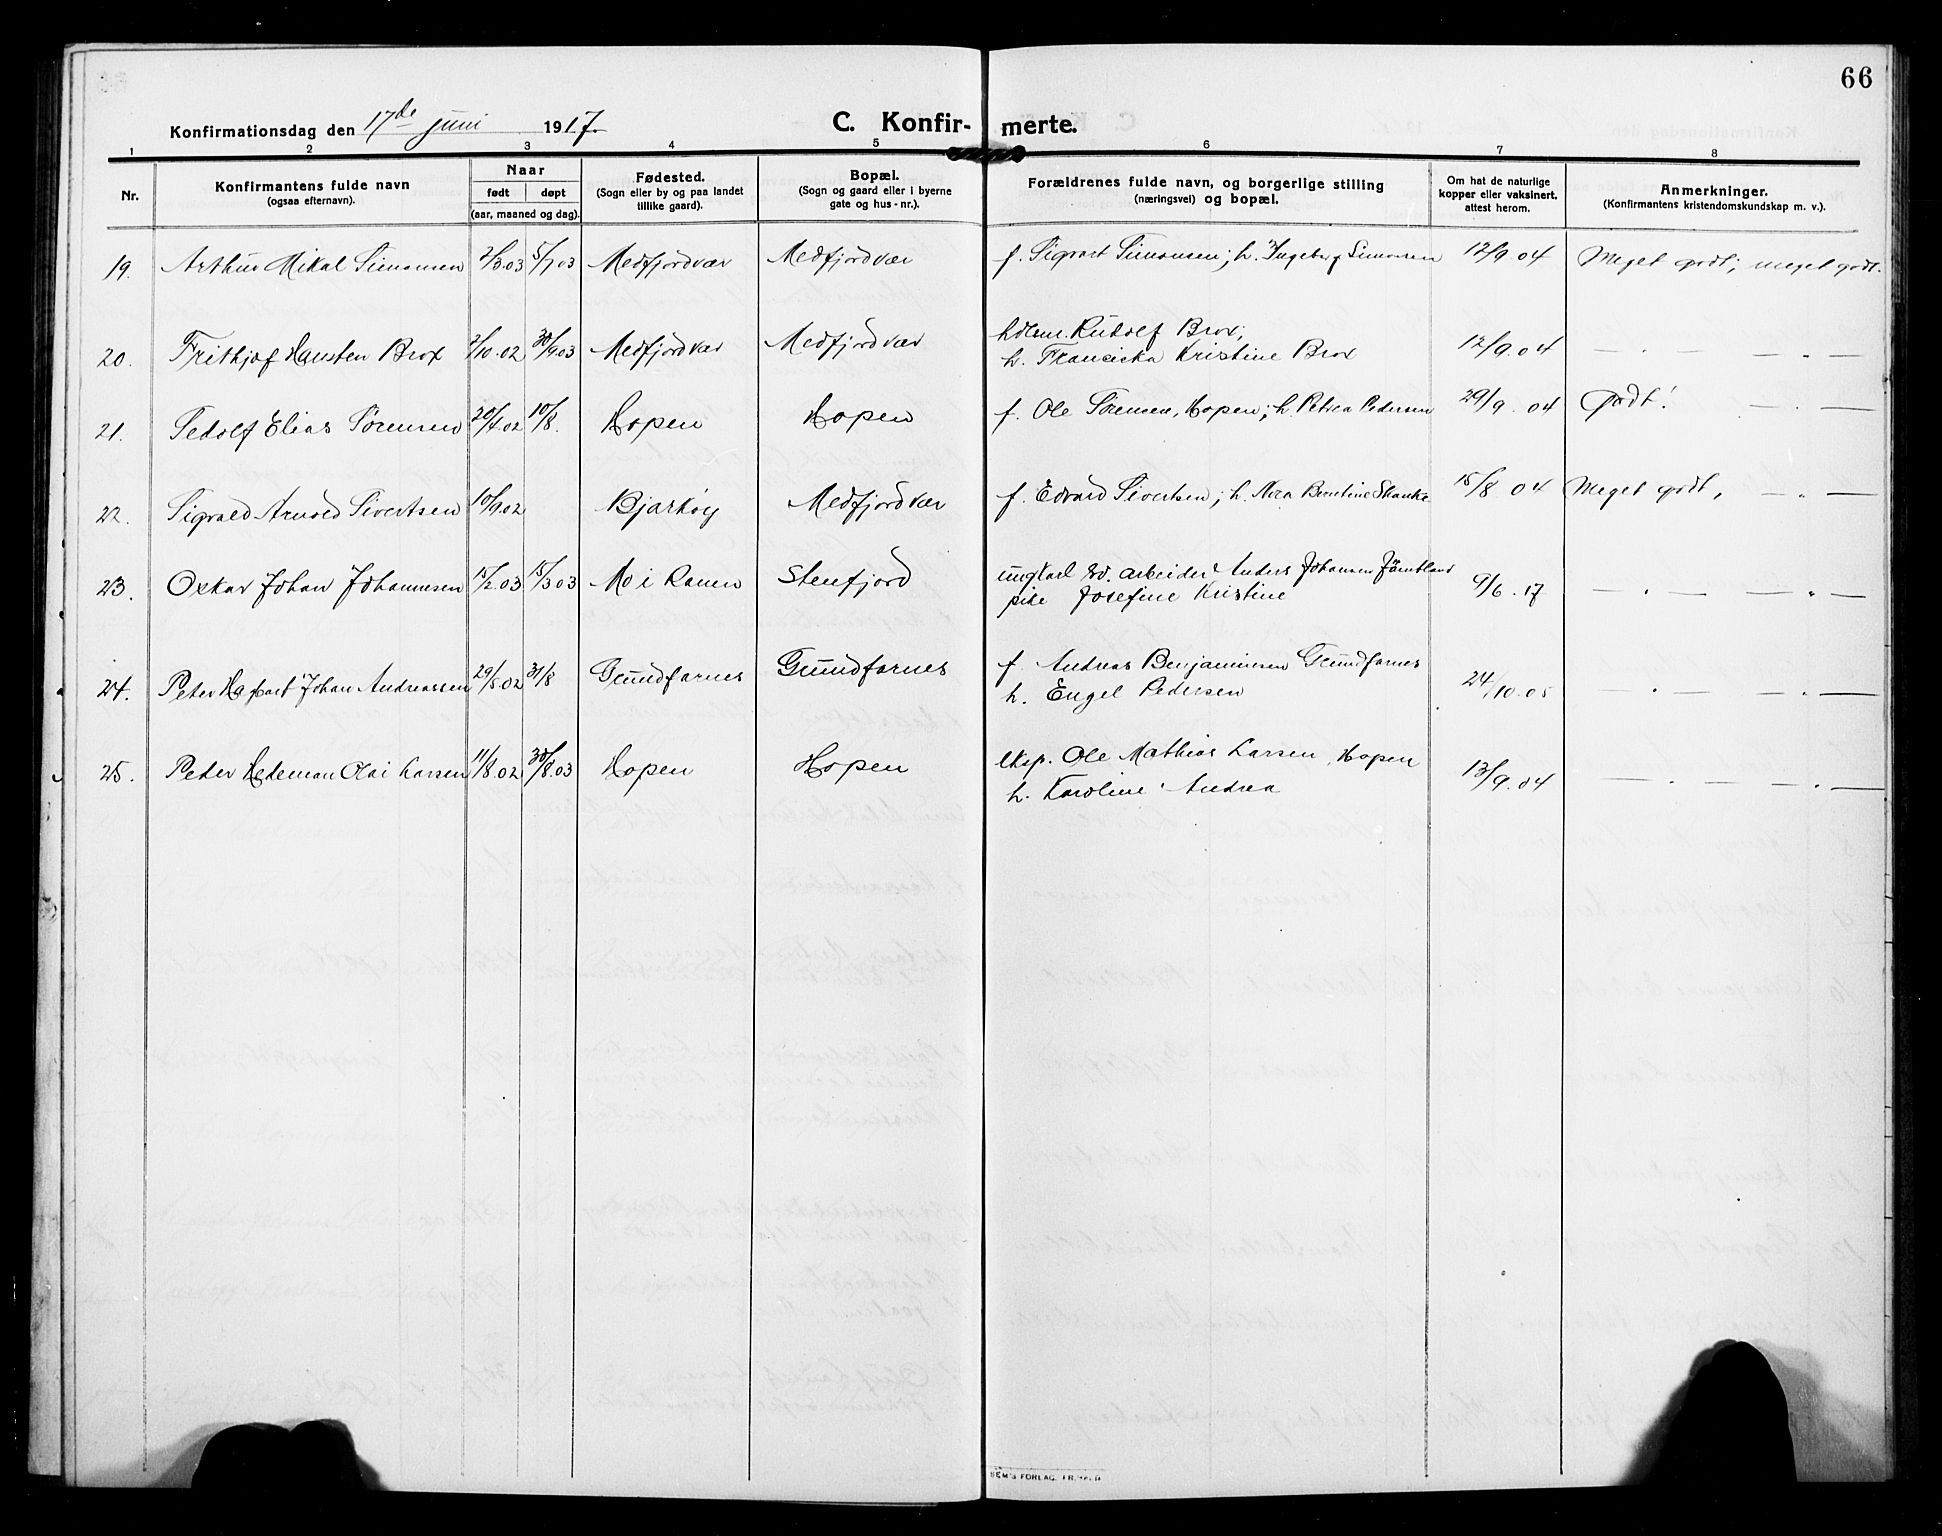 66
Konfirmationsdag den 17de juni 1917.
C. Konfir- merte.
1 2 3 4 5 6 7 8
Nr.
Konfirmantens fulde navn
(ogsaa efternavn).
Naar
født døpt
(aar, maaned og dag).
Fødested.
(Sogn eller by og paa landet
tillike gaard).
Bopæl.
(Sogn og gaard eller i byerne
gate og hus-nr.).
Forældrenes fulde navn, og borgerlige stilling
(næringsvei) og bopæl.
Om hat de naturlige
kopper eller vaksinert,
attest herom.
Anmerkninger.
(Konfirmantens kristendomskundskap m. v.).
19. Arthur Mikal Simonsen 2/3.03 5/7 03 Medfjordvær Medfjordvær f. Sigvart Simonsen; h. Ingeborg Simonsen 12/9 04 Meget godt; meget godt.
20. Frithjof Hansten Brox 2/10.02 30/9 03 Medfjordvær Medfjordvær hdlsm. Rudolf Brox;
h. Franciska Kristine Brox 12/9.04 — . — . —
21. Tedolf Elias Sørensen 20/4.02 10/8. Hopen Hopen f. Ole Sørensen, Hopen; h. Petrea Pedersen 29/9. 04 Godt! — . —
22. Sigvald Arnold Sivertsen 10/9.02 Bjarkøy Medfjordvær f. Edvard Sivertsen; h. Nora Berntine Skanke 15/8 04 Meget godt, — " —
23. Oskar Johan Johannesen 15/2.03 15/3 03 Mo i Ranen Stenfjord ungkarl og arbeider Anders Johansen Jämtland
pike Josefine Kristine 9/6.17 — . — — " —
24. Peter Johan Andreassen 29/5.02 31/8 Grundfarnes Grundfarnes f. Andreas Benjaminsen Grundfarnes
h. Engel Pedersen 24/10.05 — . — — " —
25. Peder Hedeman Olai Larsen 11/8.02 30/8.03 Hopen Hopen eksp. Ole Mathias Larsen, Hopen
h. Karoline Andrea 13/9.04 — . — — . —
SEM'S FORLAG, FR.HALD